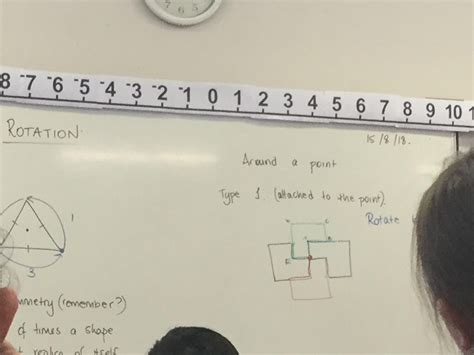 7 6 5
8 -7 -6 -5 -4 -3 -2 -1 0 1 2 3 4 5 6 7 8 9 10 1
ROTATION.
15/8/18.
Around a point
Type 1. (attached to the point).
Rotate
1
3
mmetry (remember?)
of times a shape
t replica of itself